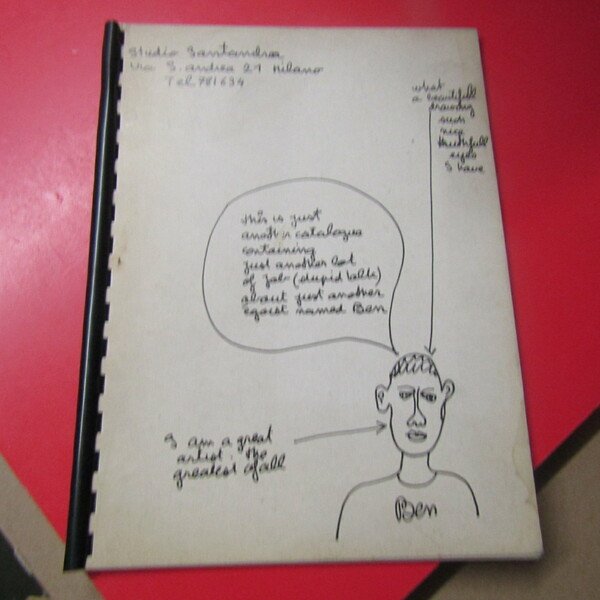 Studio Santandrea
via S. andrea 21 milano
Tel 781634
what
a beautifull
drawing
such
nice
thruthfull
eyes
I have
this is just
another catalogue
containing
just another lot
of jab (stupid talk)
about just another
egoist named Ben
I am a great
artist : the
greatest of all
Ben